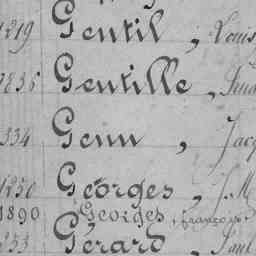 1219 Gentil, Louis
1836 Gentille,
334 Genu, Jacq
1250 Georges, J. M
1890 Georges, françois
253 Gérard, Paul